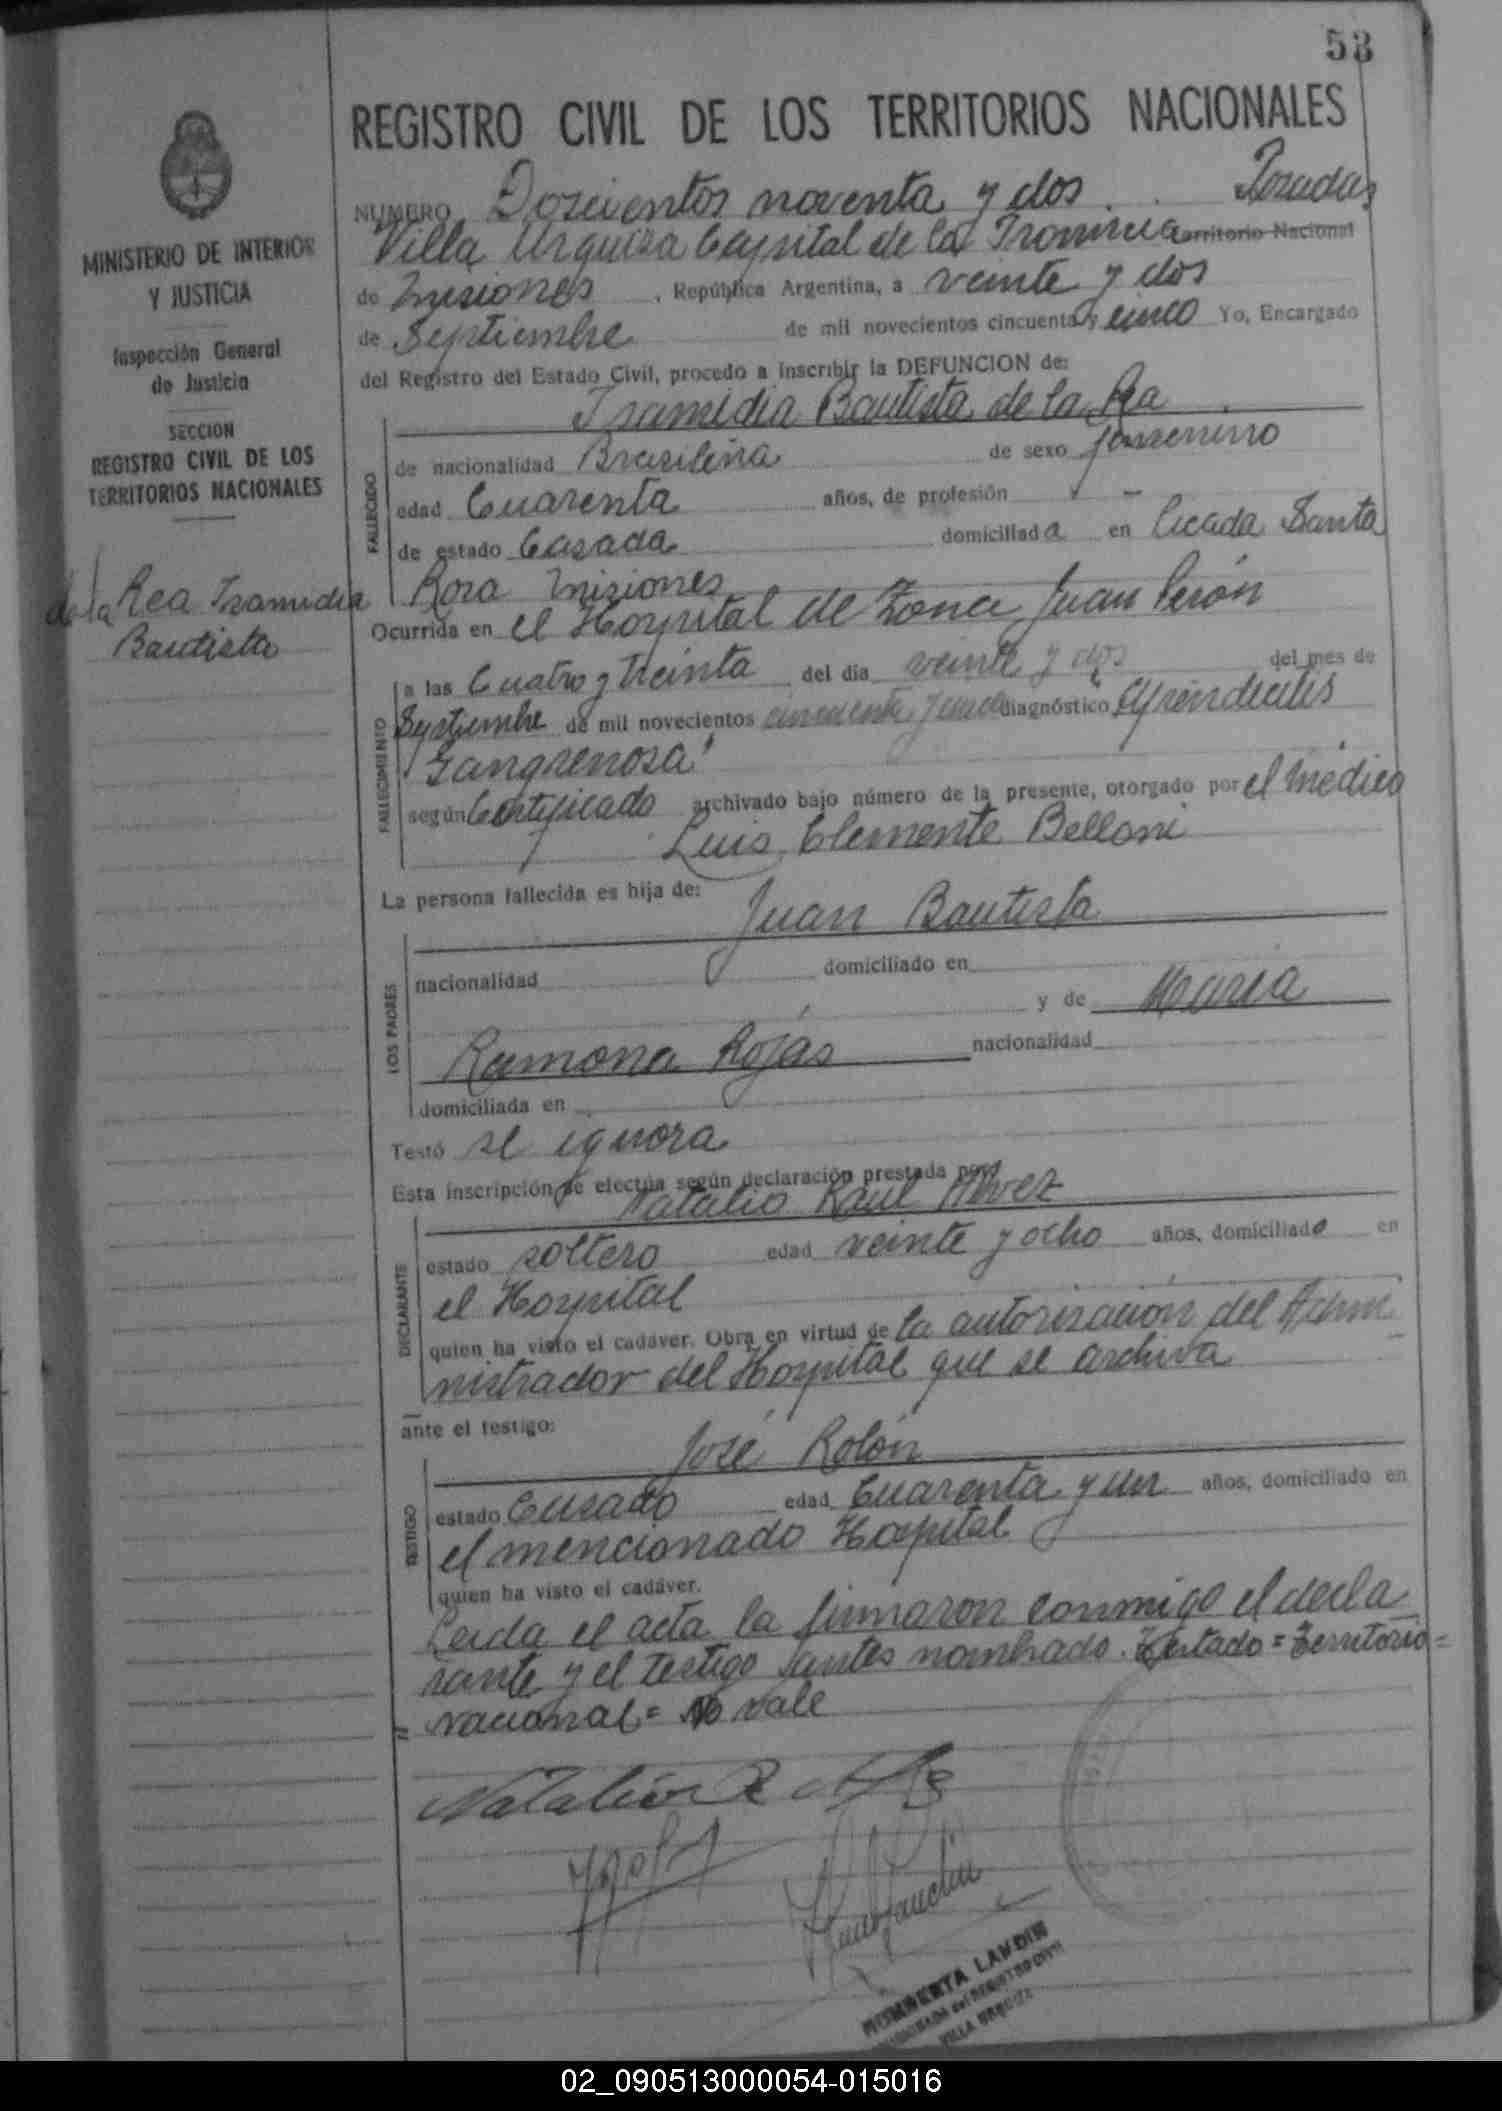 53
REGISTRO CIVIL DE LOS TERRITORIOS NACIONALES
MINISTERIO DE INTERIOR
Y JUSTICIA
Inspección General
de Justicia
SECCION
REGISTRO CIVIL DE LOS
TERRITORIOS NACIONALES
de la Rea Iramidia
Bautista
NUMERO Doscientos noventa y dos . Posadas
Villa Urquiza Capital de la Provincia Territorio Nacional
de Misiones , República Argentina, a veinte y dos
de Septiembre de mil novecientos cincuenta y cinco Yo, Encargado
del Registro del Estado Civil, procedo a inscribir la DEFUNCION de:
Iramidia Bautista de la Rea
FALLECIDO
de nacionalidad Brasileña de sexo femenino
edad Cuarenta años, de profesión —
de estado Casada domiciliada en Picada Santa
Rosa Misiones
Ocurrida en el Hospital de Zona Juan Perón
FALLECIMIENTO
a las Cuatro y treinta del día veinte y dos del mes de
Septiembre de mil novecientos cincuenta y cinco diagnóstico Apendicitis
Gangrenosa
según Certificado archivado bajo número de la presente, otorgado por el médico
Luis Clemente Belloni
La persona fallecida es hija de:
Juan Bautista
LOS PADRES
nacionalidad domiciliado en
y de Maria
Ramona Rojas nacionalidad
domiciliada en
Testó se ignora
Esta inscripción se efectúa según declaración prestada por:
Natalio Raul Alvez
DECLARANTE
estado soltero edad veinte y ocho años, domiciliado en
el Hospital
quien ha visto el cadáver. Obra en virtud de la autorización del Admi
nistrador del Hospital que se archiva
ante el testigo:
José Rolón
TESTIGO
estado Casado edad Cuarenta y un años, domiciliado en
el mencionado Hospital
quien ha visto el cadáver.
Leida el acta la firmaron conmigo el decla
rante y el testigo antes nombrado. Testado = Territorio =
nacional = No vale
Natalio R
HUMBERTA LANDIN
ENCARGADA del REGISTRO CIVIL
VILLA URQUIZA
02_090513000054-015016